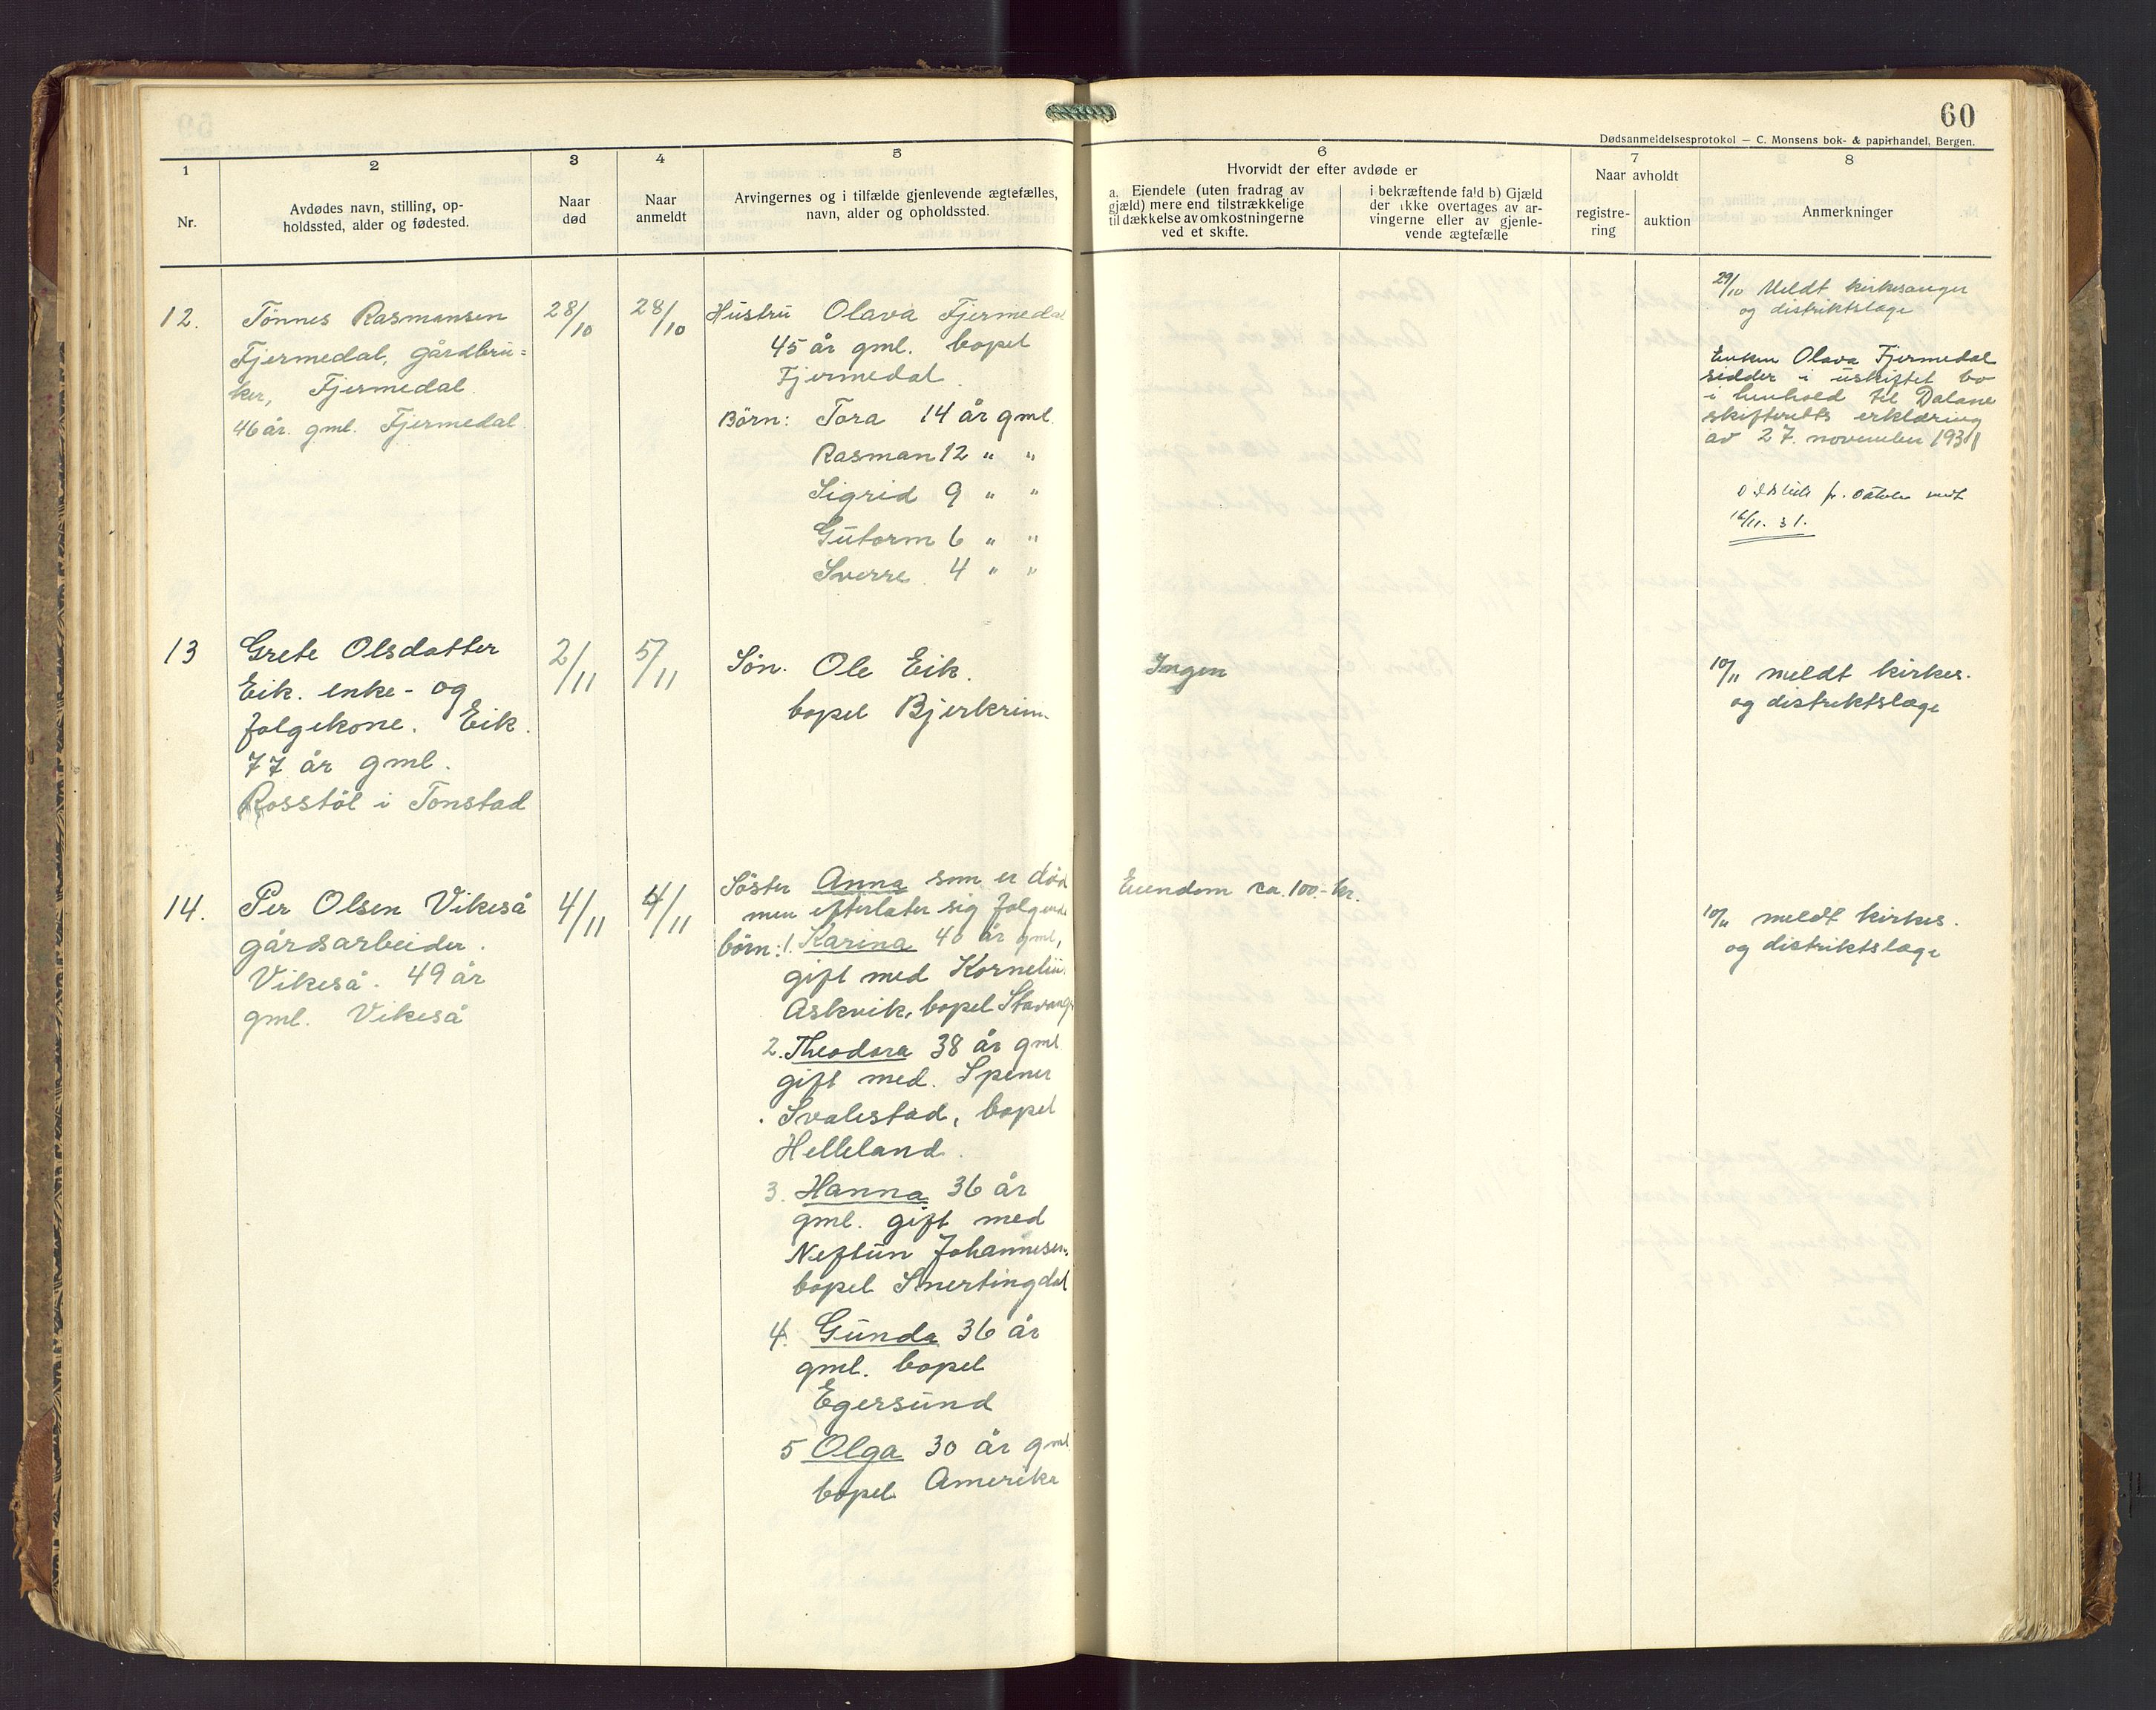 60
Dødsanmeldelsesprotokol — C. Monsens bok- & papirhandel, Bergen.
1
Nr.
2
Avdødes navn, stilling, op-
holdssted, alder og fødested.
3
Naar
død
4
Naar
anmeldt
5
Arvingernes og i tilfælde gjenlevende ægtefælles,
navn, alder og opholdssted.
6
Hvorvidt der efter avdøde er
a. Eiendele (uten fradrag av
gjæld) mere end tilstrækkelige
til dækkelse av omkostningerne
ved et skifte.
i bekræftende fald b) Gjæld
der ikke overtages av ar-
vingerne eller av gjenle-
vende ægtefælle
7
Naar avholdt
registre-
ring
auktion
8
Anmerkninger
12.
Tönnes Rasmansen
Fjermedal, gårdbru=
ker, Fjermedal.
46 år. gml. Fjermedal.
28/10
28/10
Hustru Olava Fjermedal
45 år gml. bopel
Fjermedal.
Börn: Tora 14 år gml.
Rasman 12 " "
Sigrid 9 " "
Gutorm 6 " "
Sverre. 4 " "
29/10 Meldt kirkesanger
og distriktslæge
Enken Olava Fjermedal
sidder i uskiftet bo
i henhold til Dalane
skifteretts erklæring
av 27. november 1931
16/11. 31.
13
Grete Olsdatter
Eik. enke- og
folgekone. Eik.
77 år gml.
Rosstöl i Tonstad
2/11
5/11
Sön. Ole Eik.
bopel Bjerkreim.
Ingen
10/11 meldt kirkes.
og distriktslæge
14.
Per Olsen Vikeså
gårdsarbeider.
Vikeså. 49 år
gml. Vikeså
4/11
4/11
Söster Anna som er död
men efterlater sig folgende
börn: 1. Karina 40 år gml,
gift med Kornelius
Askvik, bopel Stavanger
2. Theodora 38 år gml
gift med. Spener
Svalestad, bopel
Helleland.
3. Hanna 36 år
gml. gift med
Neftun Johannesen.
bopel Snertingdal
4. Gunda 36 år
gml. bopel
Egersund
5 Olga 30 år gml
bopel Amerika
Eiendom ca. 100.- kr.
10/11 meldt kirkes.
og distriktslæge